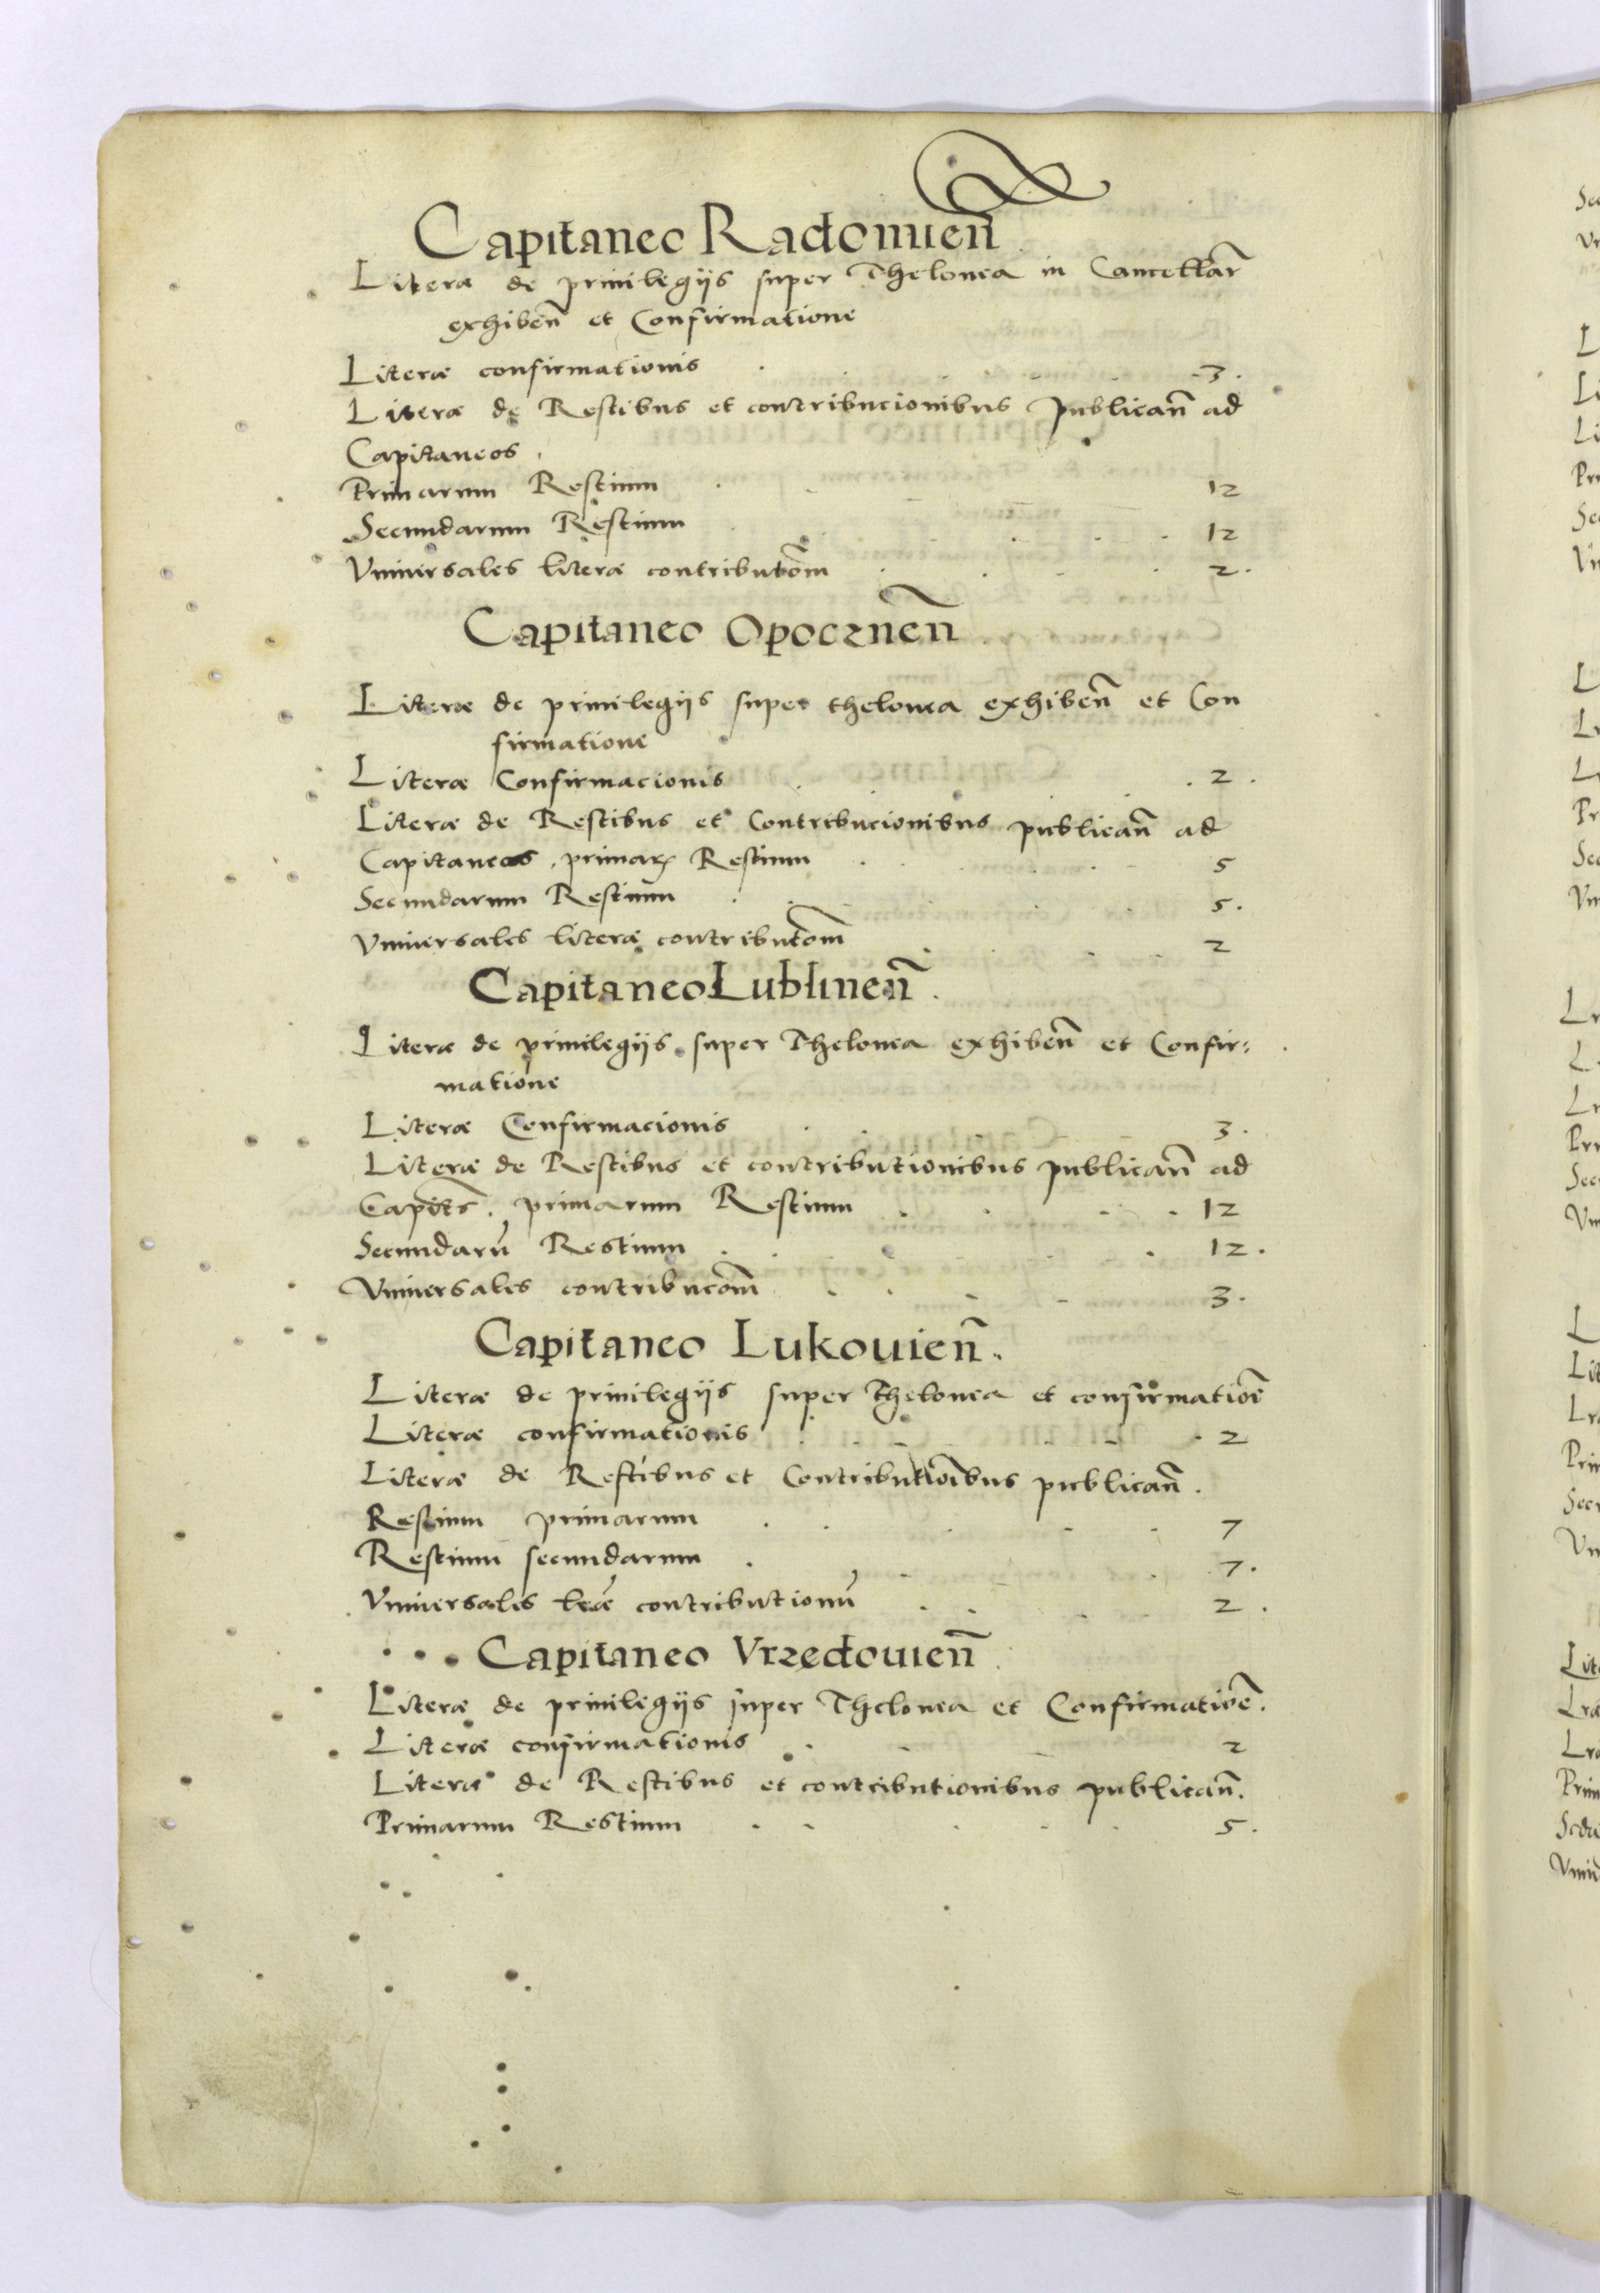 Capitaneo Radomien̄
Literæ de priuilegijs super Thelonea in Cancellar̄
exhiben̄ et Confirmatione
Literæ confirmationis . . . . . . 3 .
Literæ de Restibus et contribucionibus publican̄ ad
Capitaneos .
Primarum Restium . . . . 12
Secundarum Restium . . . . 12
Vniuersales literæ contributiom̄ . . . . 2 .
Capitaneo Opocznen̄
Literæ de priuilegijs super thelonea exhiben̄ et Con
firmatione
Literæ Confirmacionis . . . . 2 .
Literæ de Restibus et Contribucionibus publican̄ ad
Capitaneos . primarꝝ Restium . . . . 5
Secundarum Restium . . . . 5 .
Vniuersales literæ contributiom̄ . . . . 2
Capitaneo Lublinen̄ .
Literæ de priuilegijs super Thelonea exhiben̄ et Confir:
matione
Literæ Confirmacionis . . . . 3 .
Literæ de Restibus et contributionibus publican̄ ad
Capit̄s . primarum Restium . . . . 12
Secundarū Restium . . . . 12 .
Vniuersales contribuciom̄ . . . . 3 .
Capitaneo Lukouien̄ .
Literæ de priuilegijs super Thelonea et confirmatioē
Literæ confirmationis . . . . 2
Literæ de Restibus et Contributioībus publican̄ .
Restium primarum . . . . 7
Restium secundarum . . . . 7 .
Vniuersales lr̄æ contributionū . . . . 2 .
Capitaneo Vrzedouien̄
Literæ de priuilegijs super Thelonea et Confirmatioē .
Literæ confirmationis . . . . 2
Literæ de Restibus et contributionibus publican̄ .
Primarum Restium . . . . 5 .